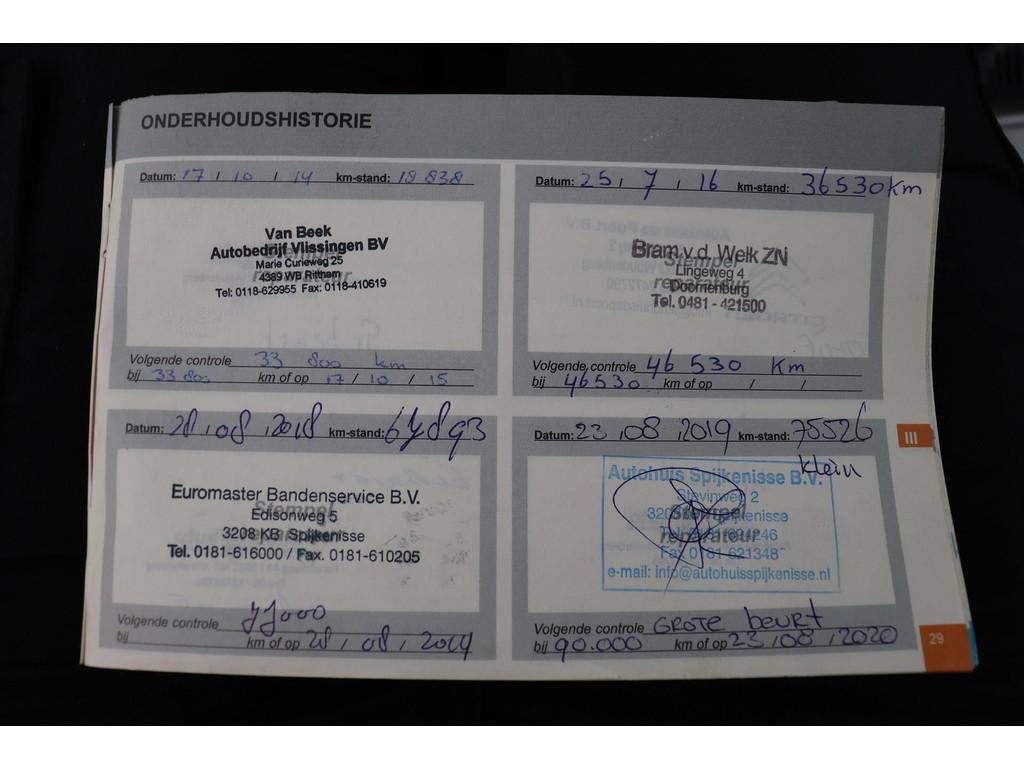 ONDERHOUDSHISTORIE
Datum: 17 / 10 / 14 km-stand: 18 838
Van Beek
Autobedrijf Vlissingen BV
Marie Curieweg 25
4389 WB Ritthem
Tel: 0118-629955 Fax: 0118-410619
Stempel
reparateur
Volgende controle 33 800 km
bij 33 800 km of op 17 / 10 / 15
Datum: 25 / 7 / 16 km-stand: 36530km
Bram v.d. Welk ZN
Lingeweg 4
Doornenburg
Tel. 0481 - 421500
Stempel
reparateur
Volgende controle 46 530 Km
bij 46530 km of op / /
Datum: 28 / 08 / 2018 km-stand:
Euromaster Bandenservice B.V.
Edisonweg 5
3208 KB Spijkenisse
Tel. 0181-616000 / Fax. 0181-610205
Stempel
Volgende controle
bij km of op 28 / 08 / 2019
Datum: 23 / 08 / 2019 km-stand: 75526
klein
Autohuis Spijkenisse B.V.
Stevinweg 2
Spijkenisse
Fax 0181 621348
e-mail: info@autohuisspijkenisse.nl
Stempel
reparateur
Volgende controle GROTE beurt
bij 90.000 km of op 23 / 08 / 2020
III
29